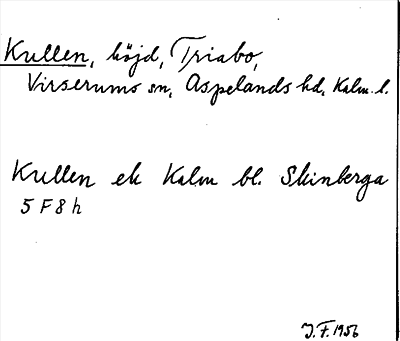 Kullen, höjd, Triabo,
Virserums sn, Aspelands hd, Kalm. l.
Kullen ek Kalm bl. Skinberga
5 F 8 h
J.F. 1956